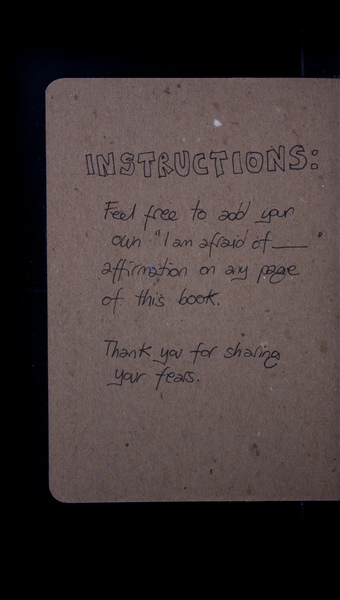 INSTRUCTIONS:
Feel free to add your
own "I am afraid of ____"
affirmation on any page
of this book.
Thank you for sharing
your fears.